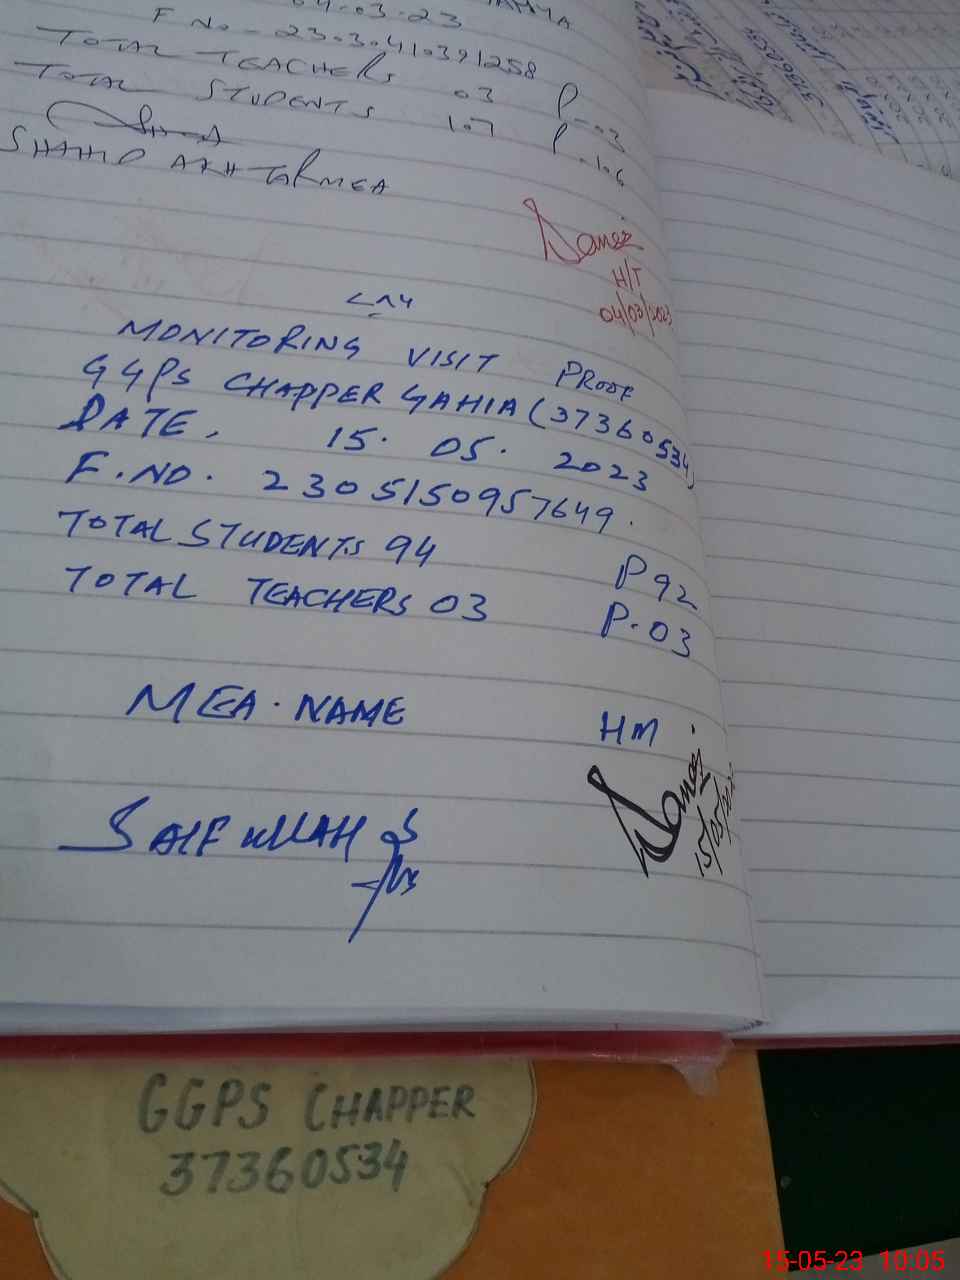 04.03.23
F No- 23030410391258
TOTAL TEACHERS 03 P-03
TOTAL STUDENTS 107 P.106
SHAHID AKHTAR MEA
H/T
04/03/2023
MONITORING VISIT PROOF
GGPS CHAPPER GAHIA (37360534)
DATE. 15. 05. 2023
F.NO. 2305150957649.
TOTAL STUDENTS 94 P 92
TOTAL TEACHERS 03 P.03
MEA. NAME HM
SAIF ULLAH
15/05/2023
GGPS CHAPPER
37360534
15-05-23 10:05